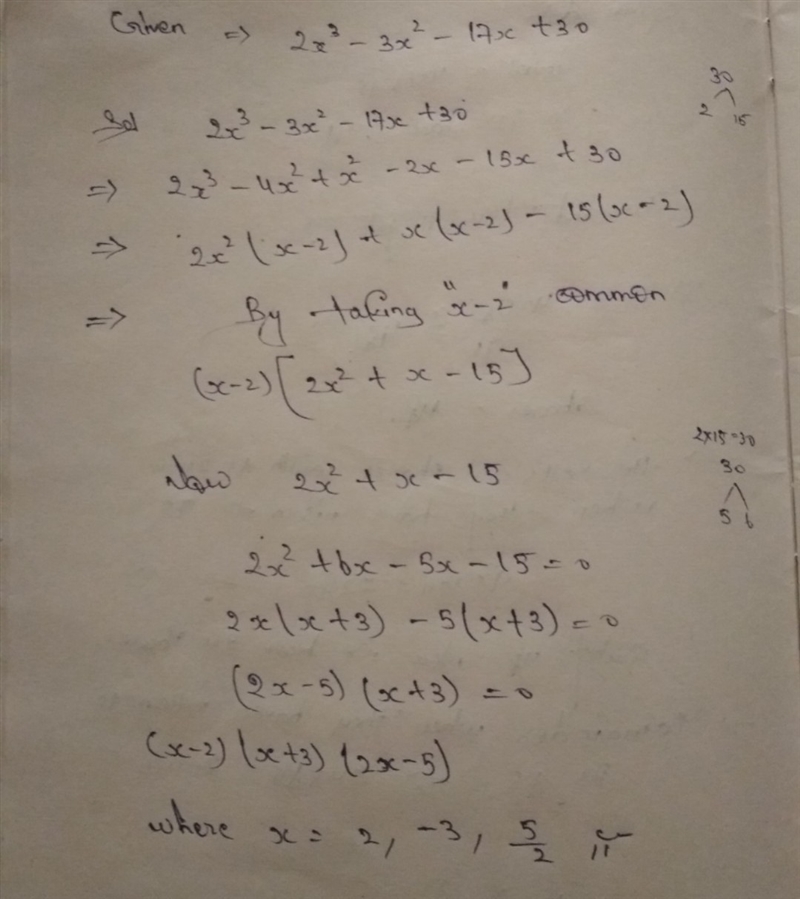 Given => 2x³ - 3x² - 17x + 30
30
2 15
Sol 2x³ - 3x² - 17x + 30
=> 2x³ - 4x² + x² - 2x - 15x + 30
=> 2x² (x-2) + x(x-2) - 15(x-2)
=> By taking "x-2" common
(x-2)[2x² + x - 15]
2x15=30
Now 2x² + x - 15
30
5 6
2x² + 6x - 5x - 15 = 0
2x(x+3) - 5(x+3) = 0
(2x-5) (x+3) = 0
(x-2) (x+3) (2x-5)
where x = 2, -3, 5/2